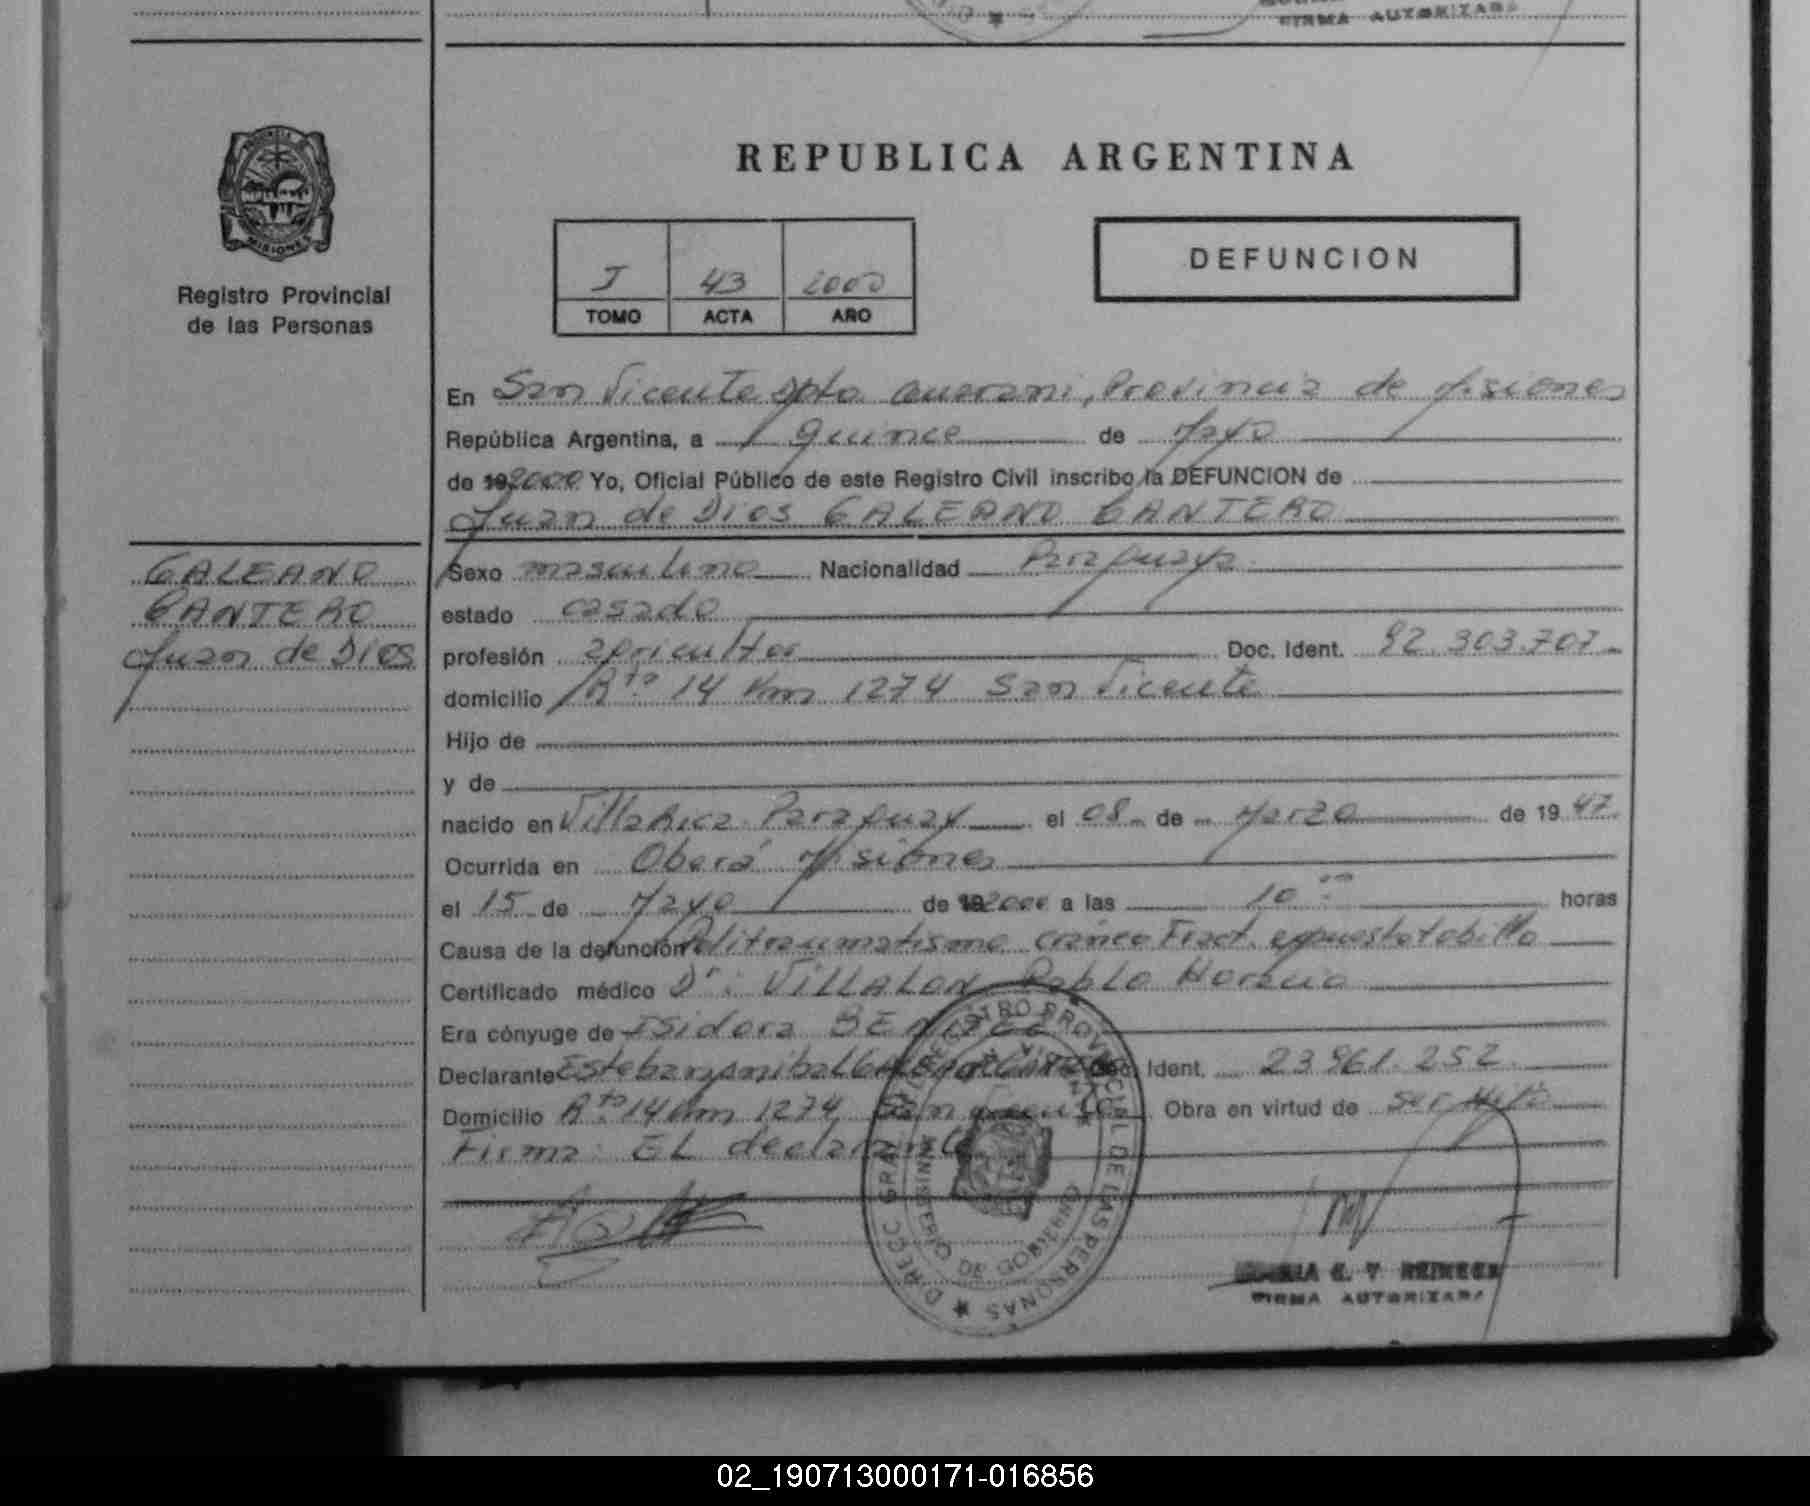 FIRMA AUTORIZADA
REPUBLICA ARGENTINA
PROVINCIA DE
MISIONES
Registro Provincial
de las Personas
I 43 2000
TOMO ACTA AÑO
DEFUNCION
En San Vicente Dpto Guarani, Provincia de Misiones
República Argentina, a quince de Mayo
de 192000 Yo, Oficial Público de este Registro Civil inscribo la DEFUNCION de
Juan de Dios GALEANO CANTERO
GALEANO
CANTERO
Juan de Dios
Sexo masculino Nacionalidad Paraguaya
estado casado
profesión agricultor Doc. Ident. 92.303.707
domicilio Rta 14 Km 1274 San Vicente
Hijo de
y de
nacido en Villarica Paraguay el 08 de Marzo de 1947
Ocurrida en Oberá Misiones
el 15 de Mayo de 192000 a las 10 00 horas
Causa de la defunción Politraumatismo cráneo Fract. expuesta tobillo
Certificado médico Dr: VILLALON Pablo Horacio
Era cónyuge de Isidora BENITEZ
Declarante Esteban Anibal Doc. Ident. 23.961.252
Domicilio Rta 14 Km 1274 San Vicente Obra en virtud de ser Hijo
Firma: EL declarante
DIRECC. GRAL. DEL REGISTRO PROVINCIAL DE LAS PERSONAS
MINISTERIO DE GOBIERNO
SAN VICENTE
FIRMA AUTORIZADA
02_190713000171-016856